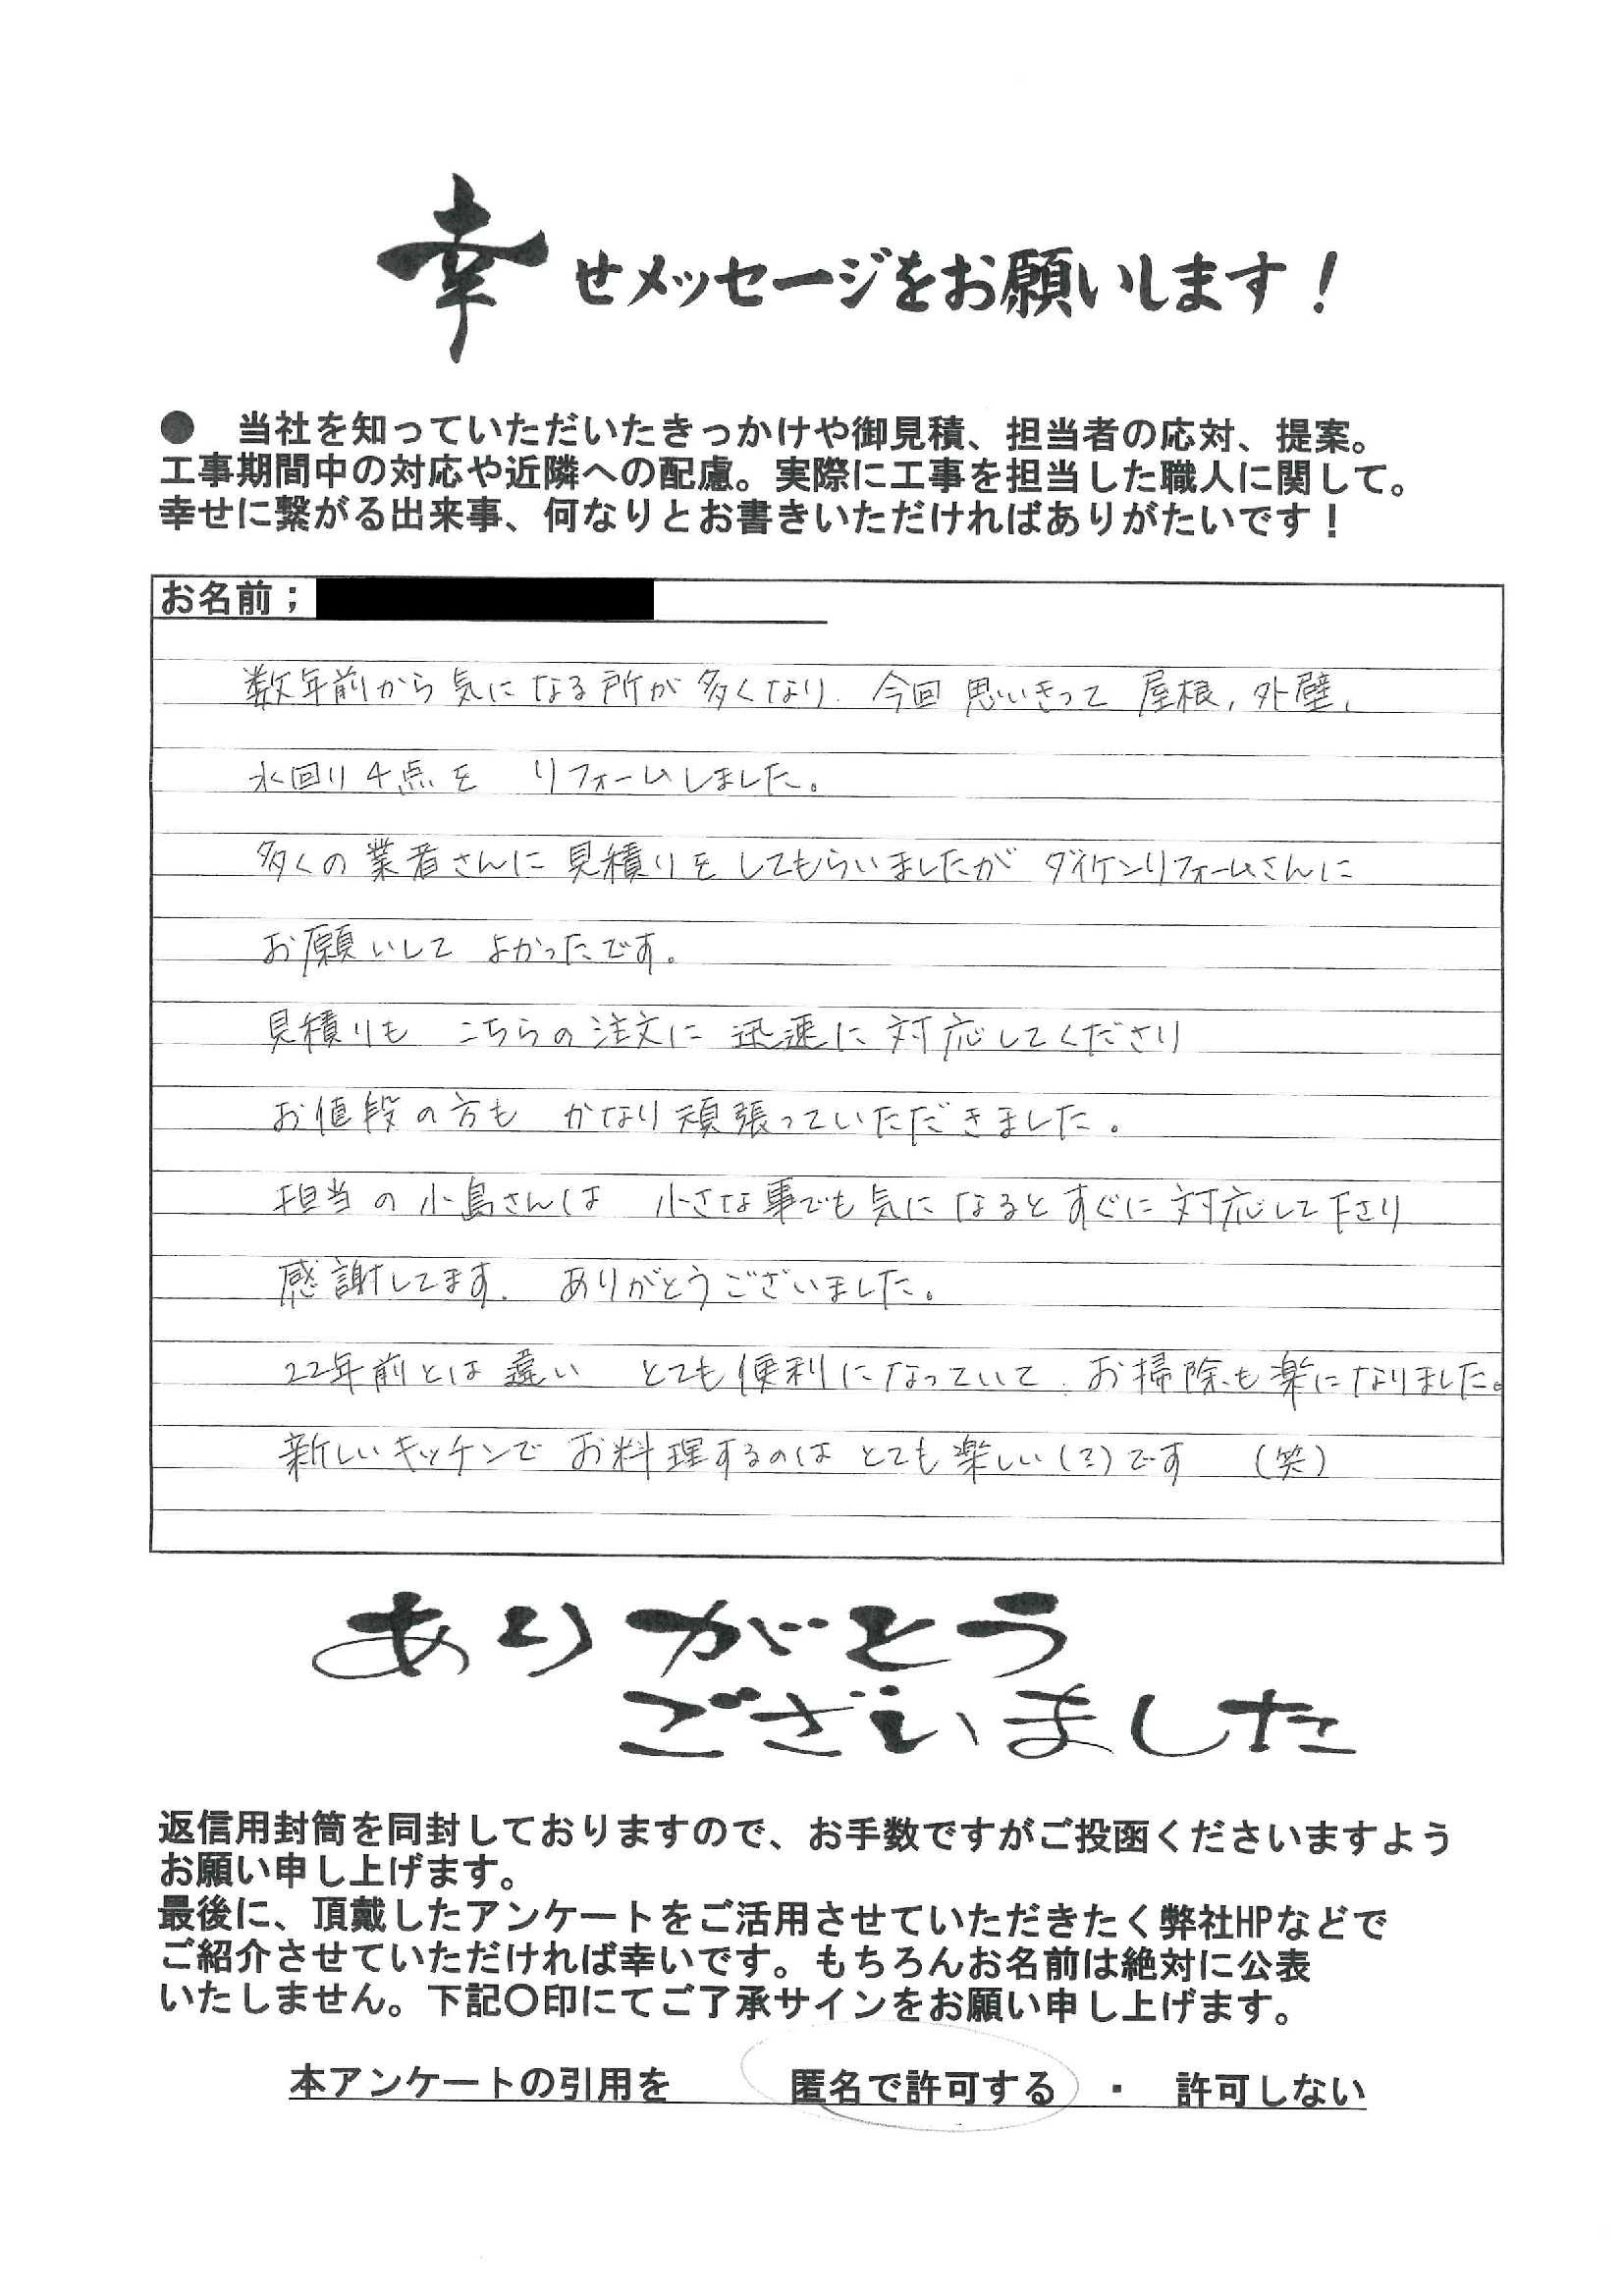 幸せメッセージをお願いします！
● 当社を知っていただいたきっかけや御見積、担当者の応対、提案。
工事期間中の対応や近隣への配慮。実際に工事を担当した職人に関して。
幸せに繋がる出来事、何なりとお書きいただければありがたいです！
お名前；
数年前から気になる所が多くなり、今回思いきって屋根，外壁，
水回り4点を リフォームしました。
多くの業者さんに見積りをしてもらいましたが ダイケンリフォームさんに
お願いして よかったです。
見積りも こちらの注文に 迅速に 対応してくださり
お値段の方も かなり頑張っていただきました。
担当の小島さんは 小さな事でも気になるとすぐに対応して下さり
感謝してます。 ありがとうございました。
22年前とは違い とても便利になっていて、お掃除も楽になりました。
新しいキッチンで お料理するのは とても楽しい(?)です (笑)
ありがとう
ございました
返信用封筒を同封しておりますので、お手数ですがご投函くださいますよう
お願い申し上げます。
最後に、頂戴したアンケートをご活用させていただきたく弊社HPなどで
ご紹介させていただければ幸いです。もちろんお名前は絶対に公表
いたしません。下記〇印にてご了承サインをお願い申し上げます。
本アンケートの引用を 匿名で許可する ・ 許可しない